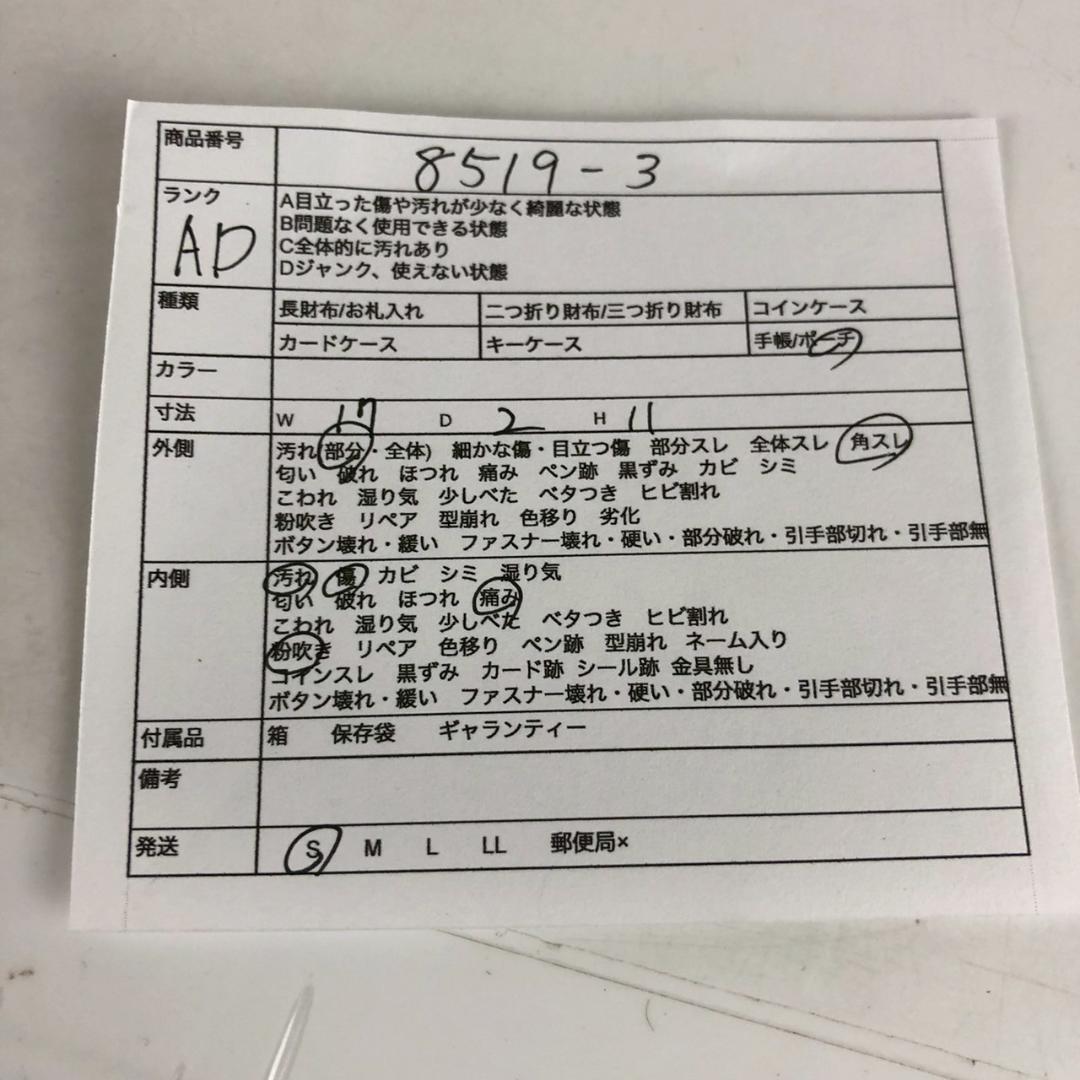 商品番号 8519-3
ランク AD
A目立った傷や汚れが少なく綺麗な状態
B問題なく使用できる状態
C全体的に汚れあり
Dジャンク、使えない状態
種類 長財布/お札入れ 二つ折り財布/三つ折り財布 コインケース
カードケース キーケース 手帳/ポーチ
カラー
寸法 W 17 D 2 H 11
外側 汚れ(部分・全体) 細かな傷・目立つ傷 部分スレ 全体スレ 角スレ
匂い 破れ ほつれ 痛み ペン跡 黒ずみ カビ シミ
こわれ 湿り気 少しべた ベタつき ヒビ割れ
粉吹き リペア 型崩れ 色移り 劣化
ボタン壊れ・緩い ファスナー壊れ・硬い・部分破れ・引手部切れ・引手部無
内側 汚れ 傷 カビ シミ 湿り気
匂い 破れ ほつれ 痛み
こわれ 湿り気 少しべた ベタつき ヒビ割れ
粉吹き リペア 色移り ペン跡 型崩れ ネーム入り
コインスレ 黒ずみ カード跡 シール跡 金具無し
ボタン壊れ・緩い ファスナー壊れ・硬い・部分破れ・引手部切れ・引手部無
付属品 箱 保存袋 ギャランティー
備考
発送 S M L LL 郵便局×